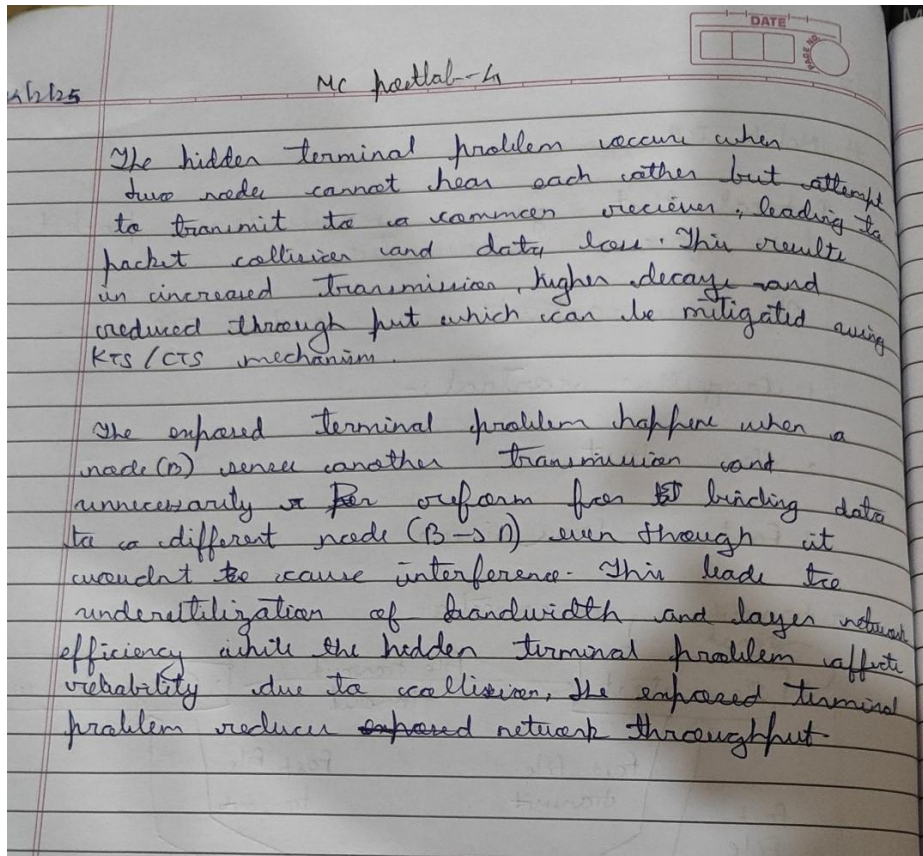 DATE
PAGE NO.
4/2/25
MC postlab--4
The hidden terminal problem occurs when
two nodes cannot hear each other but attempt
to transmit to a common reciever, leading to
packet collision and data loss. This results
in increased transmission, higher decays and
reduced through put which can be mitigated using
RTS/CTS mechanism.
The exposed terminal problem happens when a
node(B) senses another transmission and
unnecessarity from binding data
to a different node (B→D) even though it
woundnt cause interference. This leads to
underutilization of bandwidth and layer network
efficiency while the hidden terminal problem affects
reliability due to collision, the exposed terminal
problem reduces exposed network throughput